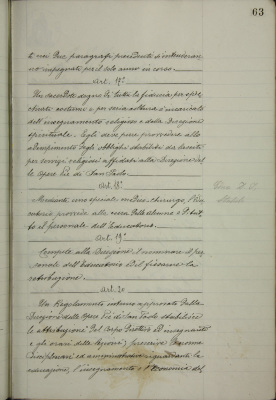 63
ti nei due paragrafi precedenti s'intenderan-
no impegnati per il solo anno in corso.
Art. 17°
Un sacerdote degno di tutta la fiducia per spec-
chiati costumi e per seria coltura s'incarica
dell'insegnamento religioso e della Direzione
spirituale. Egli deve pure provvedere allo
adempimento degli obblighi stabiliti da lasciti
per servizi religiosi affidati alla Direzione del
le Opere Pie di San Paolo.
Art. 18°
Mediante uno speciale medico-chirurgo, l'Edu-
catorio provvede alla cura delle alunne e di tut-
to il personale dell'Educatorio.
Art. 19°
Compete alla Direzione il nominare il per-
sonale dell'Educatorio ed il fissarne la
retribuzione.
Art. 20
Un Regolamento interno approvato dalla
Direzione delle Opere Pie di San Paolo stabilisce
le attribuzioni del Corpo direttivo ed insegnante
e gli orari delle lezioni; prescrive le norme
disciplinari ed amministrative riguardanti la
educazione, l'insegnamento e l'economia del